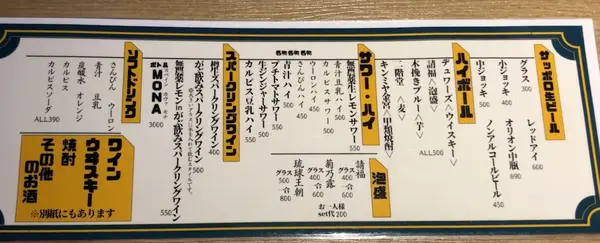 サッポロ生ビール
グラス 300
小ジョッキ 400
中ジョッキ 500
レッドアイ 600
オリオン中瓶 690
ノンアルコールビール 450
ハイボール
デュワーズ<ウイスキー>
請福<泡盛>
木挽きブルー<芋>
二階堂<麦>
キンミヤ金宮<甲類焼酎>
ALL500
サワー・ハイ
無農薬生レモンサワー 550
青汁豆乳ハイ 550
ウーロンハイ 450
さんぴんハイ 450
青汁ハイ 500
プチトマトサワー 550
生ジンジャーサワー 550
カルピス豆乳ハイ 550
名物
名物
名物
泡盛
請福
グラス 400
一合 600
菊乃露
グラス 400
一合 600
琉球王朝
グラス 500
一合 800
お一人様
set代 200
スパークリングワイン
樽生スパークリングワイン 400
がぶ飲みスパークリングワイン 500
無農薬レモンinがぶ飲みスパークリングワイン 550
MONA 3000
ソフトドリンク
さんぴん ウーロン
青汁 豆乳
炭酸水 オレンジ
カルピス
カルピスソーダ
ALL390
ワイン
ウヰスキー
焼酎
その他
のお酒
※別紙にもあります